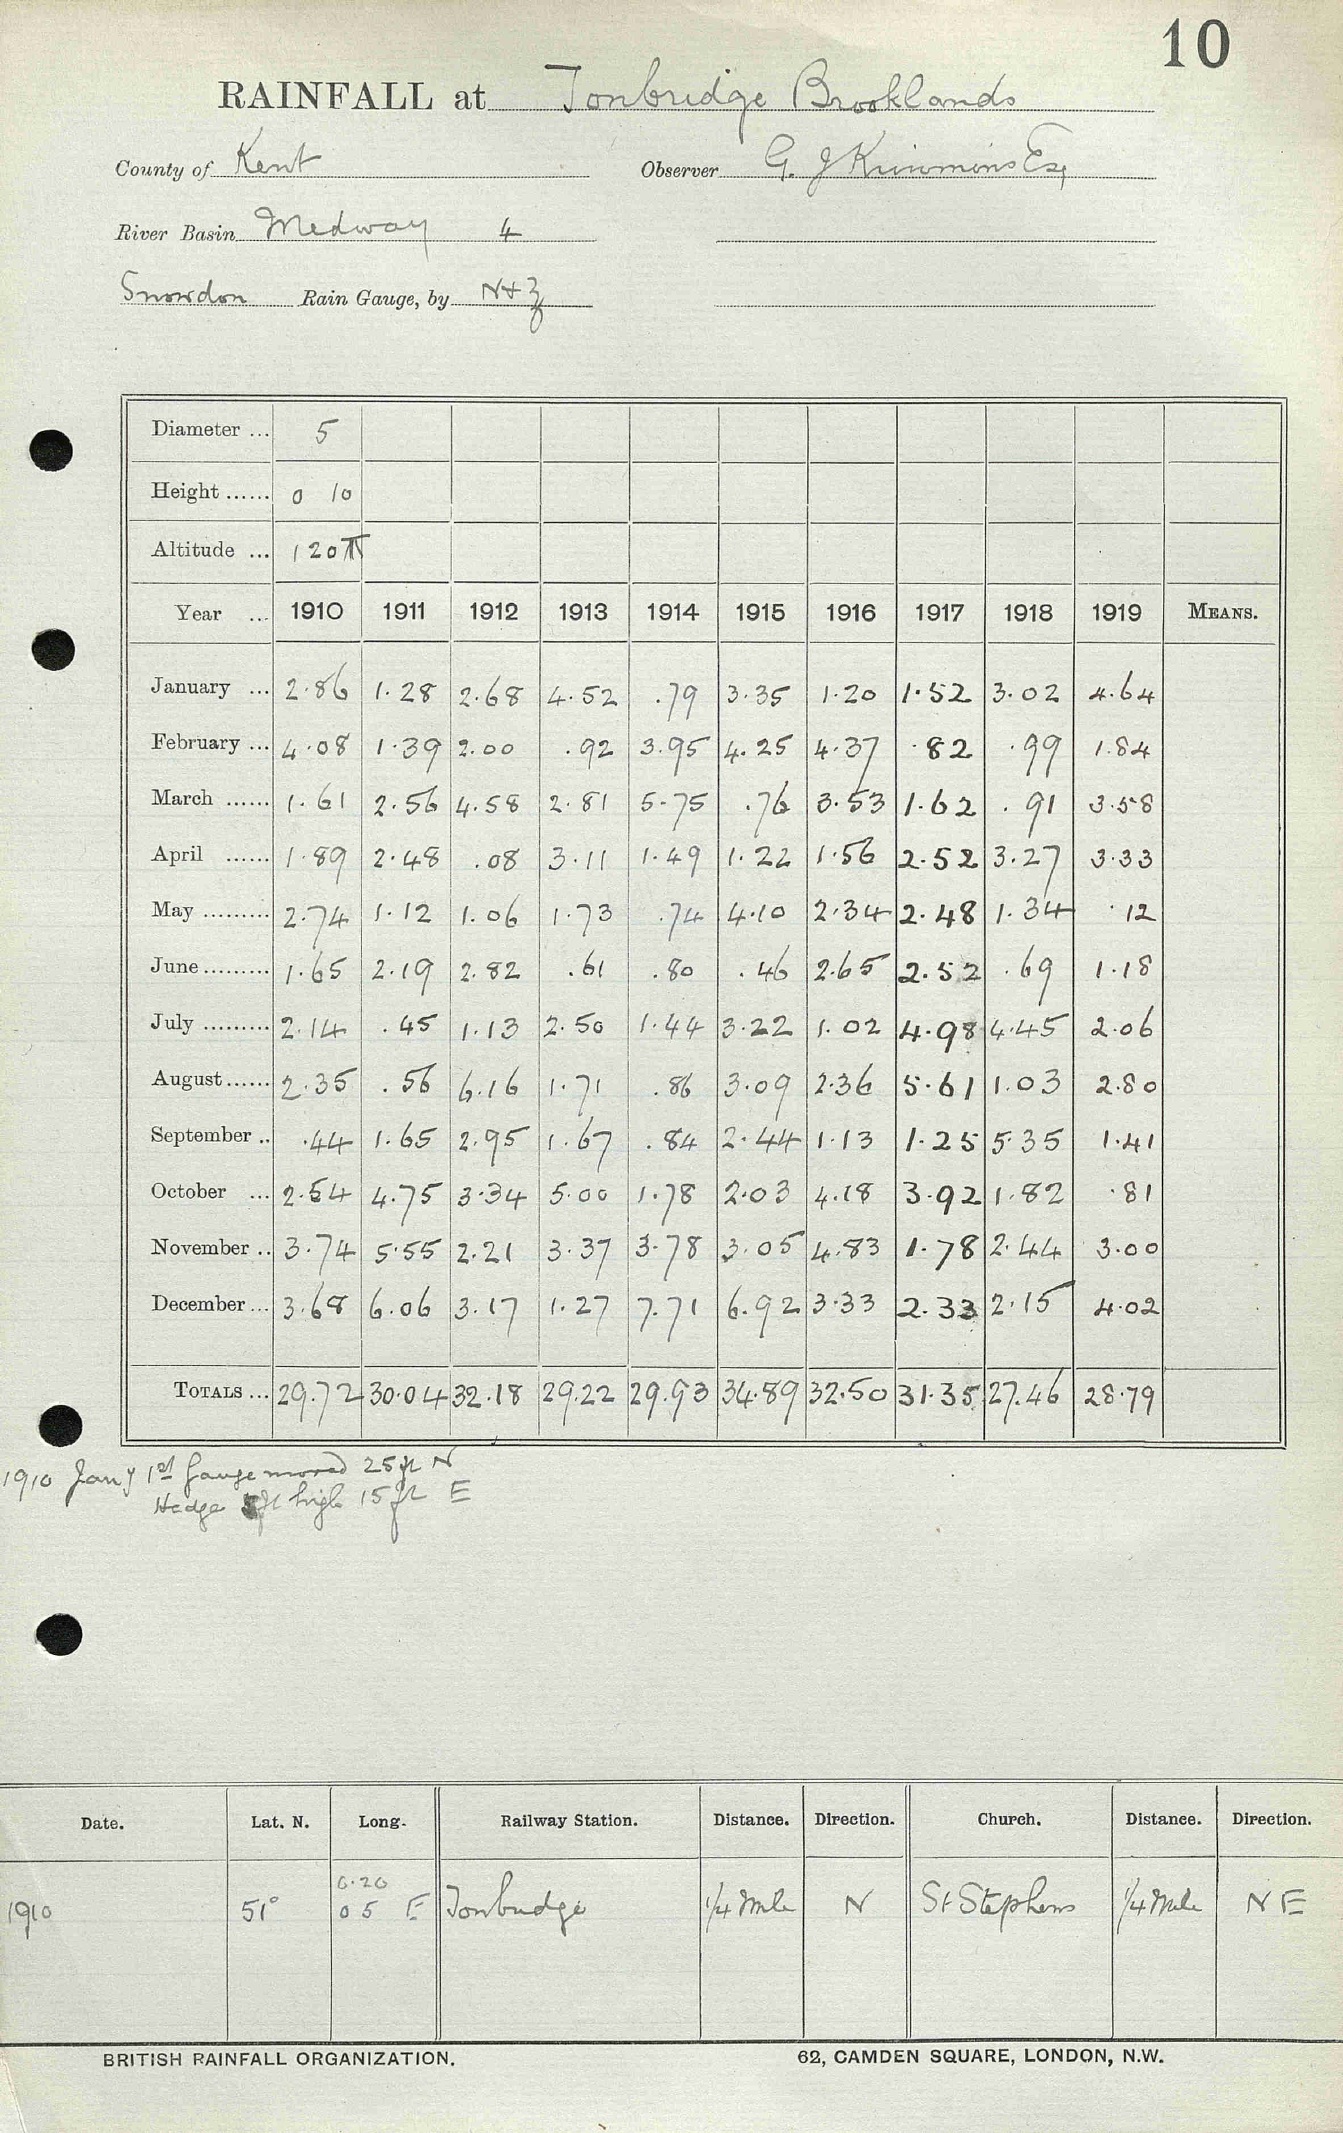 10
RAINFALL at Tonbridge Brooklands
County of Kent Observer G. J Kimmins Esq
River Basin Medway 4
Snowdon Rain Gauge, by N+Z
Diameter ... 5
Height ...... 0 10
Altitude ... 120 ft
Year ... 1910 1911 1912 1913 1914 1915 1916 1917 1918 1919 MEANS.
January ... 2.86 1.28 2.68 4.52 .79 3.35 1.20 1.52 3.02 4.64
February ... 4.08 1.39 2.00 .92 3.95 4.25 4.37 .82 .99 1.84
March ...... 1.61 2.56 4.58 2.81 5.75 .76 3.53 1.62 .91 3.58
April ...... 1.89 2.48 .08 3.11 1.49 1.22 1.56 2.52 3.27 3.33
May ......... 2.74 1.12 1.06 1.73 .74 4.10 2.34 2.48 1.34 .12
June ......... 1.65 2.19 2.82 .61 .80 .46 2.65 2.52 .69 1.18
July ......... 2.14 .45 1.13 2.50 1.44 3.22 1.02 4.98 4.45 2.06
August ...... 2.35 .56 6.16 1.71 .86 3.09 2.36 5.61 1.03 2.80
September .. .44 1.65 2.95 1.67 .84 2.44 1.13 1.25 5.35 1.41
October ... 2.54 4.75 3.34 5.00 1.78 2.03 4.18 3.92 1.82 .81
November .. 3.74 5.55 2.21 3.37 3.78 3.05 4.83 1.78 2.44 3.00
December ... 3.68 6.06 3.17 1.27 7.71 6.92 3.33 2.33 2.15 4.02
TOTALS ... 29.72 30.04 32.18 29.22 29.93 34.89 32.50 31.35 27.46 28.79
1910 Jany 1st Gauge moved 25 ft N
Hedge 5ft high 15 ft E
Date. Lat. N. Long. Railway Station. Distance. Direction. Church. Distance. Direction.
0.20
1910 51° 0 5 E Tonbridge 1/4 Mile N St Stephens 1/4 Mile N E
BRITISH RAINFALL ORGANIZATION. 62, CAMDEN SQUARE, LONDON, N.W.